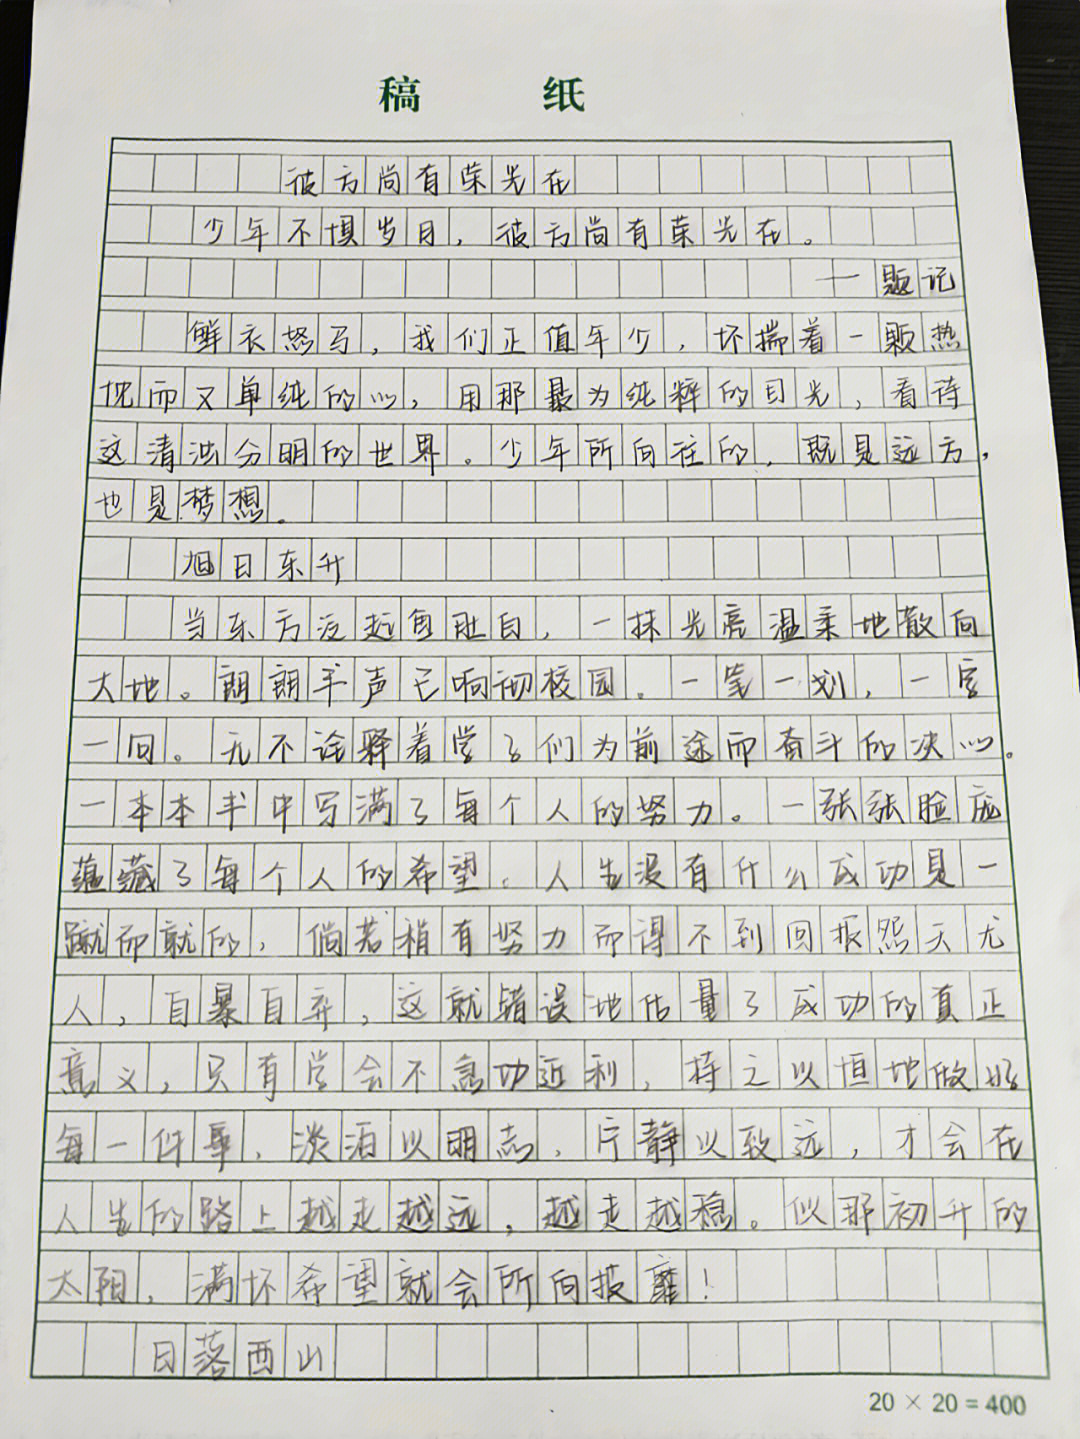 稿 纸
彼方尚有荣光在
少年不惧岁月，彼方尚有荣光在。
一题记
鲜衣怒马，我们正值年少，怀揣着一颗热
忱而又单纯的心，用那最为纯粹的目光，看待
这清浊分明的世界。少年所向往的，既是远方，
也是梦想。
旭日东升
当东方泛起鱼肚白，一抹光亮温柔地散向
大地。朗朗书声已响彻校园。一笔一划，一字
一句。无不诠释着学子们为前途而奋斗的决心。
一本本书中写满了每个人的努力。一张张脸庞
蕴藏了每个人的希望。人生没有什么成功是一
蹴而就的，倘若稍有努力而得不到回报怨天尤
人，自暴自弃，这就错误地估量了成功的真正
意义，只有学会不急功近利，持之以恒地做好
每一件事，淡泊以明志，宁静以致远，才会在
人生的路上越走越远，越走越稳。似那初升的
太阳，满怀希望就会所向披靡！
日落西山
20×20=400